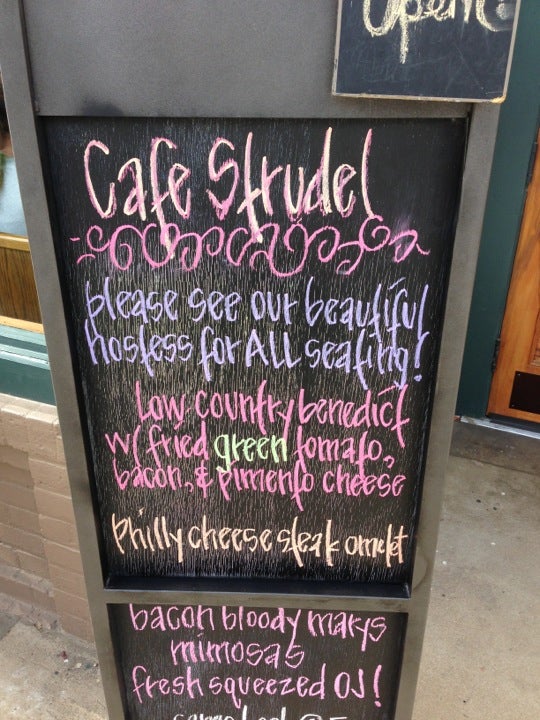 Open!
Cafe Strudel
please see our beautiful
hostess for ALL seating!
Low country benedict
w/ fried green tomato,
bacon, & pimento cheese
philly cheese steak omelet
bacon bloody marys
mimosas
fresh squeezed OJ!